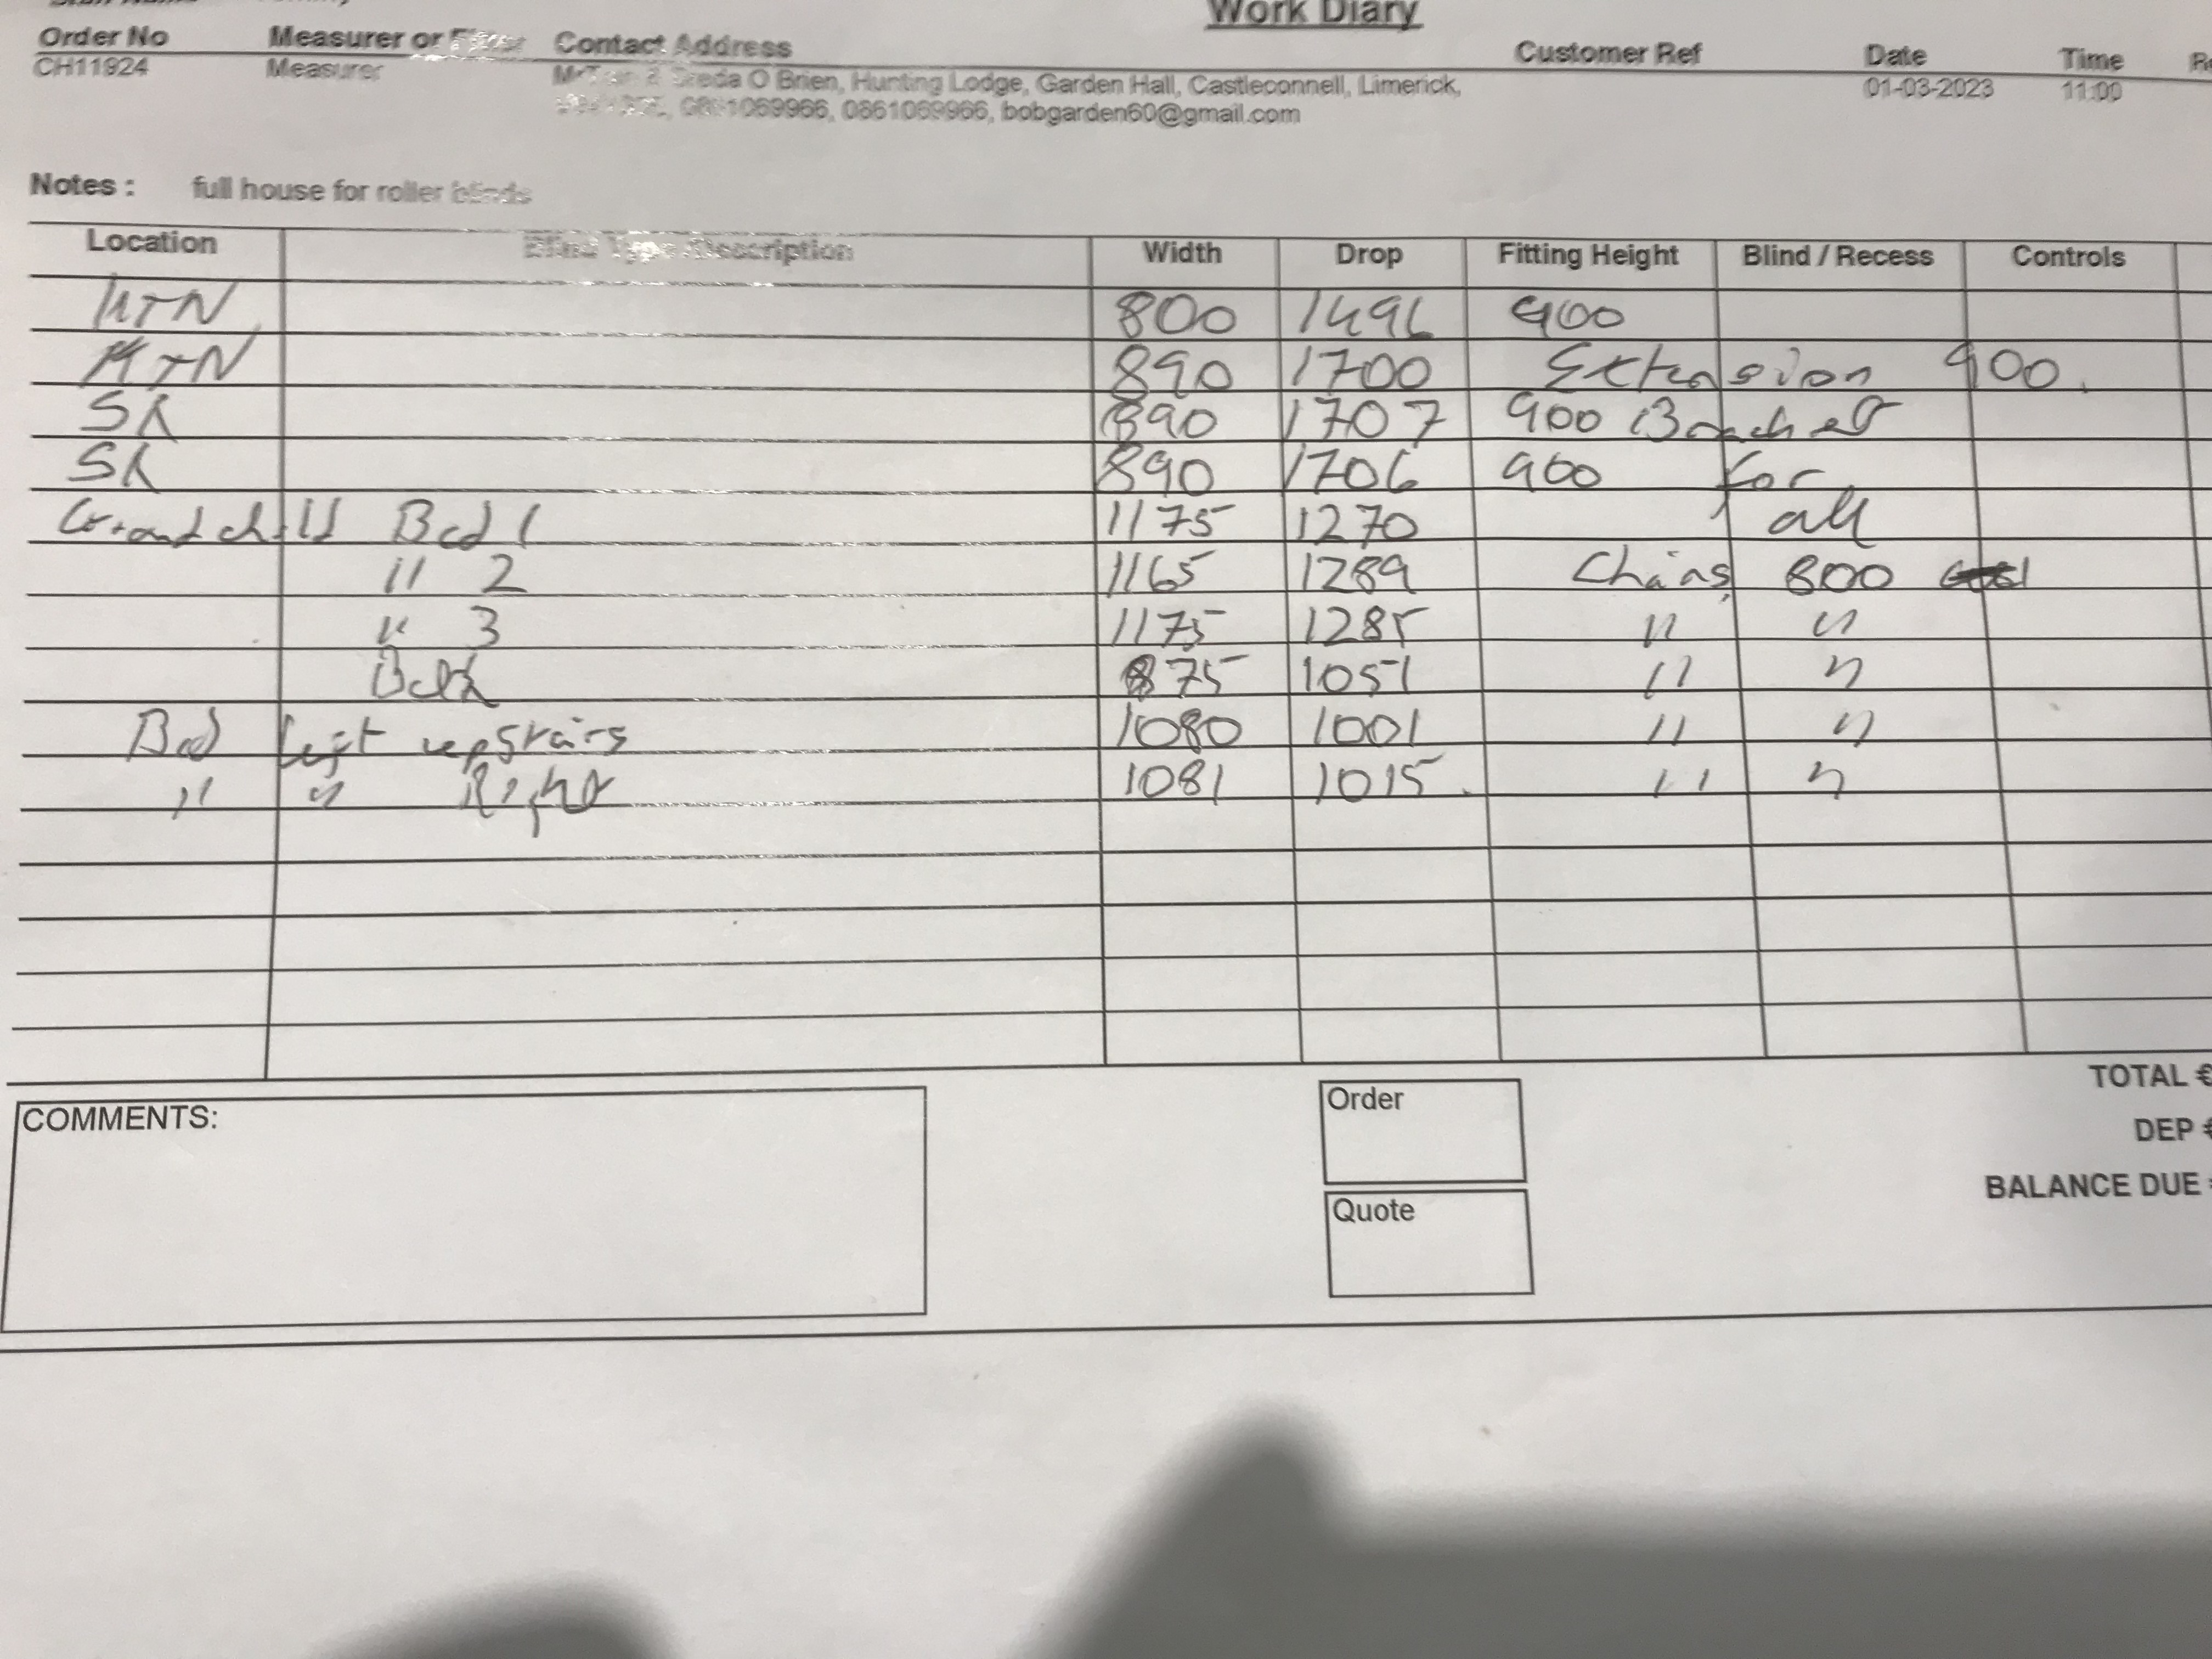 Work Diary
Order No Measurer or Contact Address Customer Ref Date Time
CH11924 Measurer O Brien, Hunting Lodge, Garden Hall, Castleconnell, Limerick, 01-03-2023 11:00
bobgarden60@gmail.com
Notes : full house for roller blinds
Location Blind Type Description Width Drop Fitting Height Blind / Recess Controls
KTN 800 1496 900
KTN 890 1700 Extension 900
SR 890 1707 900 Bracket
SR 890 1706 900 for
Grandchild Bed 1 1175 1270 all
" 2 1165 1289 Chains 800
" 3 1175 1285 " "
Bath 875 1051 " "
Bed left upstairs 1080 1001 " "
" " Right 1081 1015 " "
TOTAL €
COMMENTS: Order
DEP €
BALANCE DUE
Quote